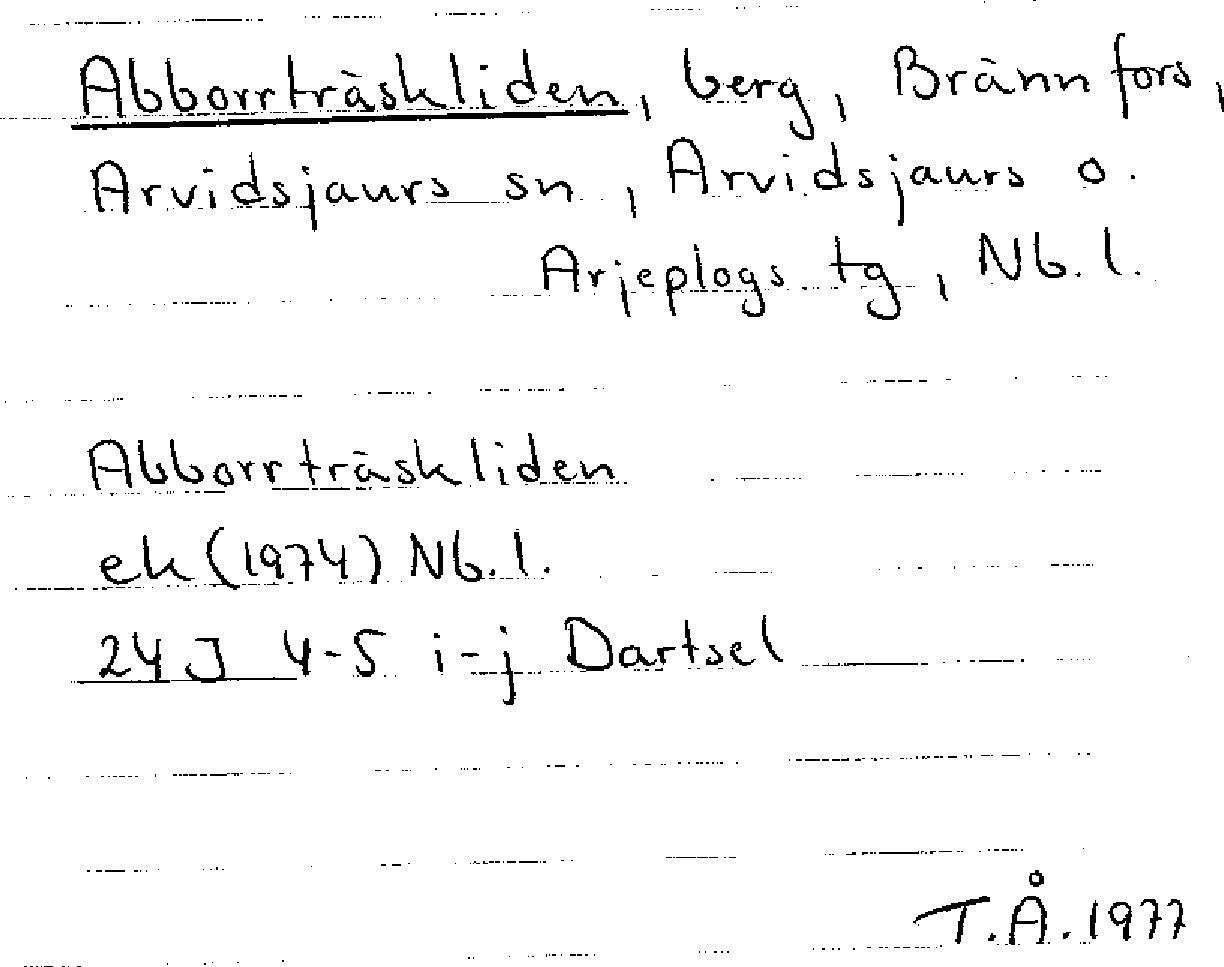 Abborrträskliden, berg, Brännfors,
Arvidsjaurs sn, Arvidsjaurs o.
Arjeplogs tg, Nb.l.
Abborrträskliden
ek (1974) Nb.l.
24J 4-5 i-j Dartsel
T.Å. 1977